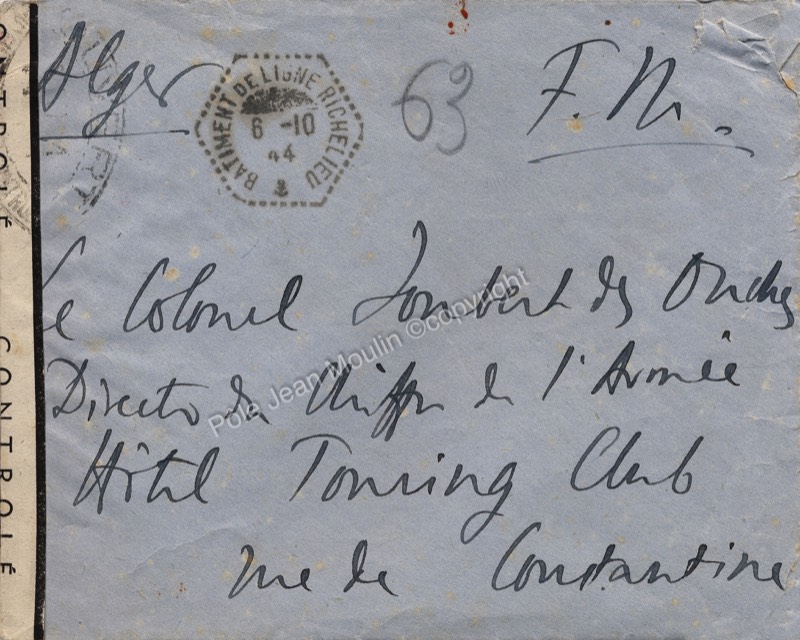 Alger
BATIMENT DE LIGNE RICHELIEU
6 -10
44
63
F. M.
Le Colonel Joubert des Ouches
Directr du Chiffre de l'Armée
Hôtel Touring Club
rue de Constantine
CONTROLÉ
CONTROLÉ
Pole Jean Moulin ©copyright